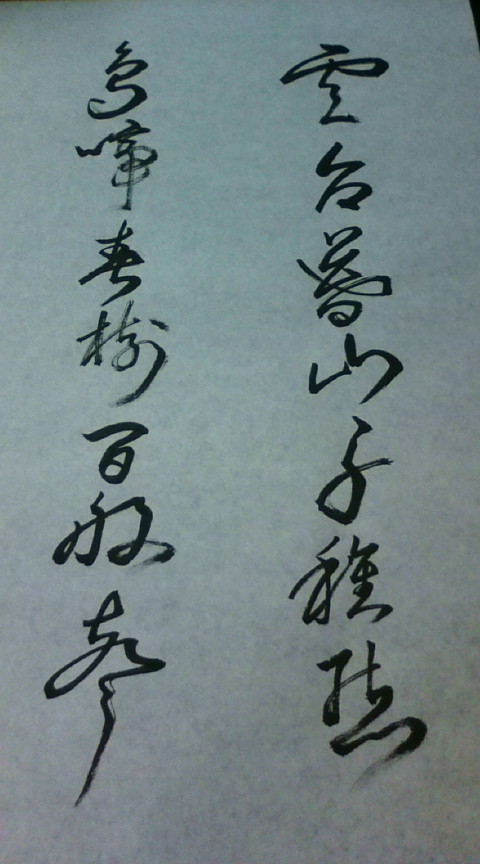 雲合暮山千種態
鳥啼春樹百般聲